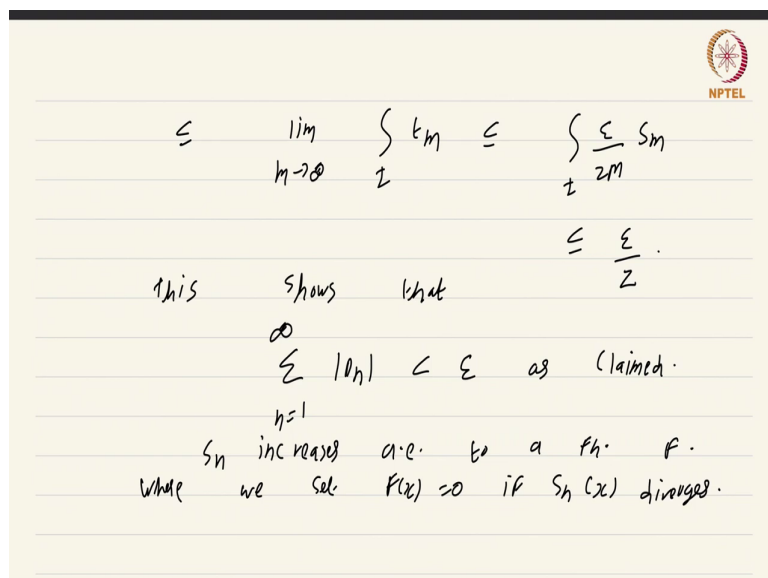 NPTEL
≤ lim ∫ tm ≤ ∫ ε/2M Sm
m→∞ I I
≤ ε/2.
This shows that
∞
Σ |Dn| < ε as claimed.
n=1
Sn increases a.e. to a fn. F.
where we set F(x) =0 if Sn (x) diverges.